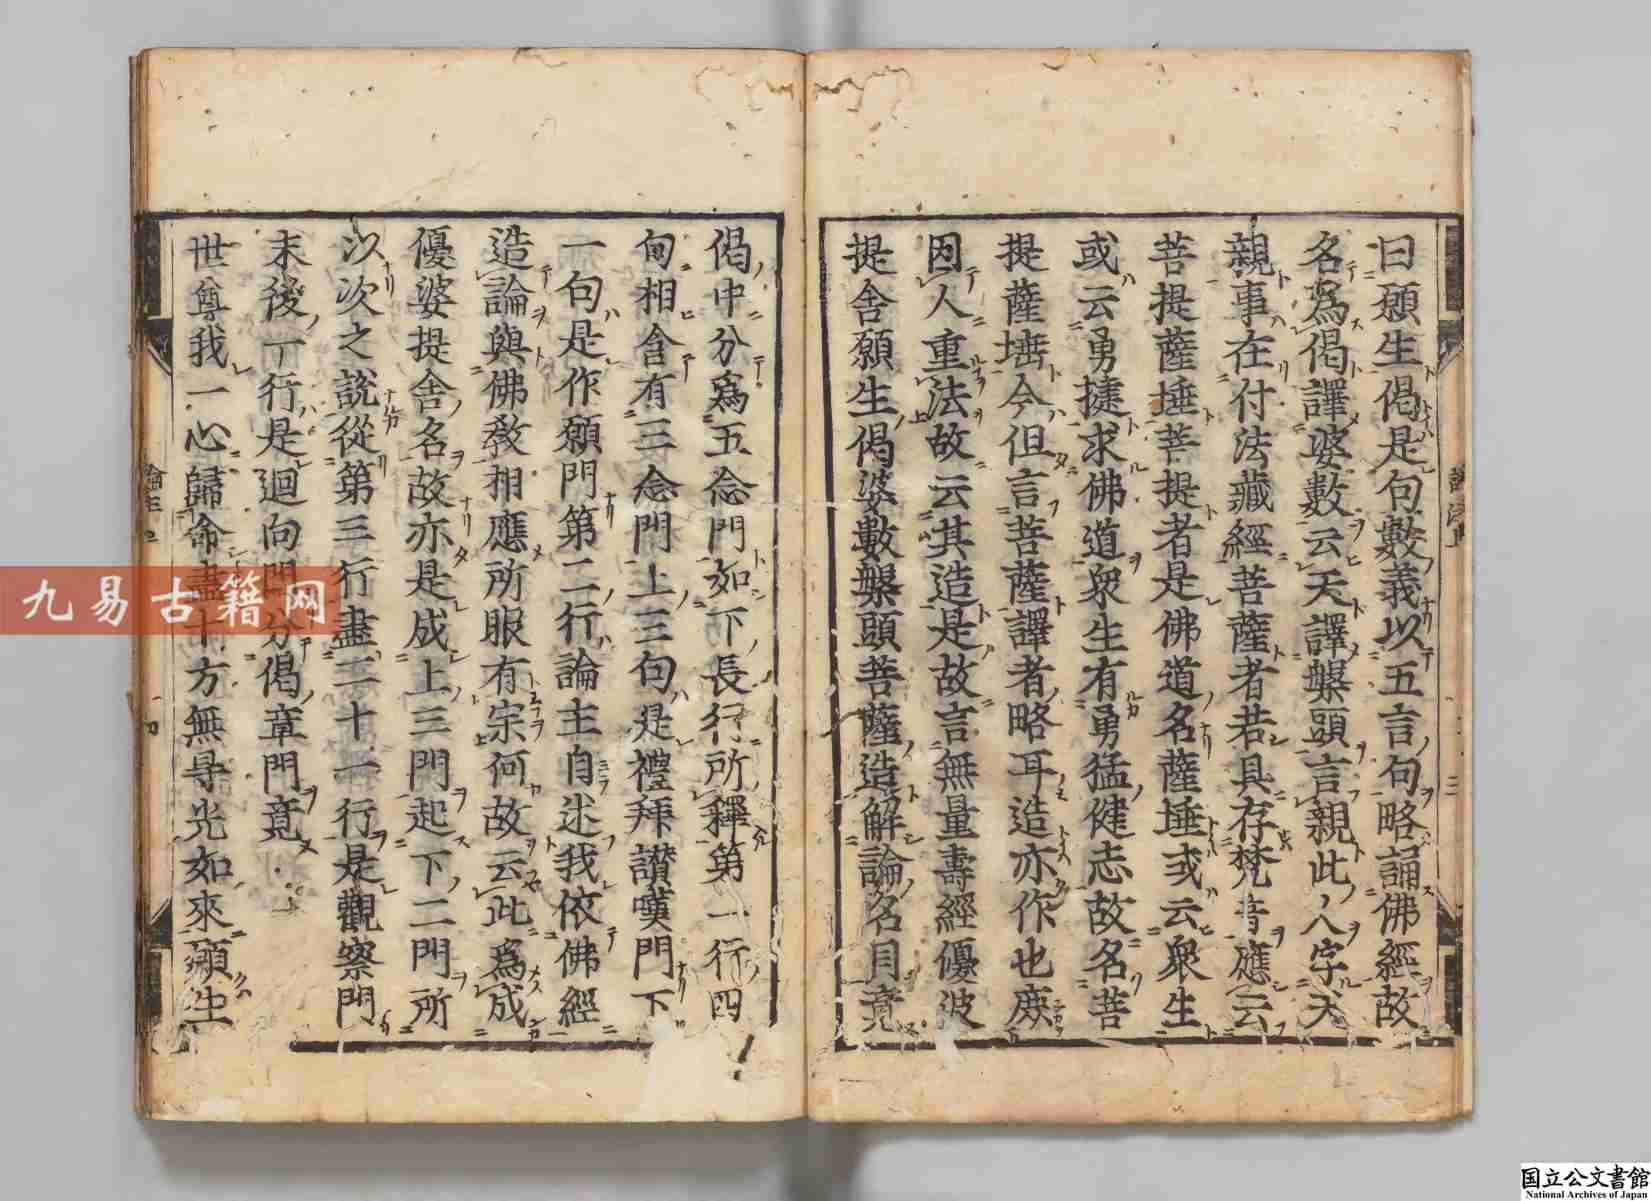 曰願生偈是句數義以五言句略誦佛經故
名爲偈譯婆數云天譯槃頭言親此人字天
親事在付法藏經菩薩者若具存梵音應云
菩提薩埵菩提者是佛道名薩埵或云衆生
或云勇揵求佛道衆生有勇猛健志故名菩
提薩埵今但言菩薩譯者略耳造亦作也庶
因人重法故云其造是故言無量壽經優波
提舍願生偈婆數槃頭菩薩造解論名目竟
偈中分爲五念門如下長行所釋第一行四
句相含有三念門上三句是禮拜讃嘆門下
一句是作願門第二行論主自述我依佛經
造論與佛敎相應所服有宗何故云此爲成
優婆提舍名故亦是成上三門起下二門所
以次之說從第三行盡二十一行是觀察門
末後一行是迴向門分偈章門竟
世尊我一心歸命盡十方無㝵光如來願生
九易古籍网
国立公文書館
National Archives of Japan